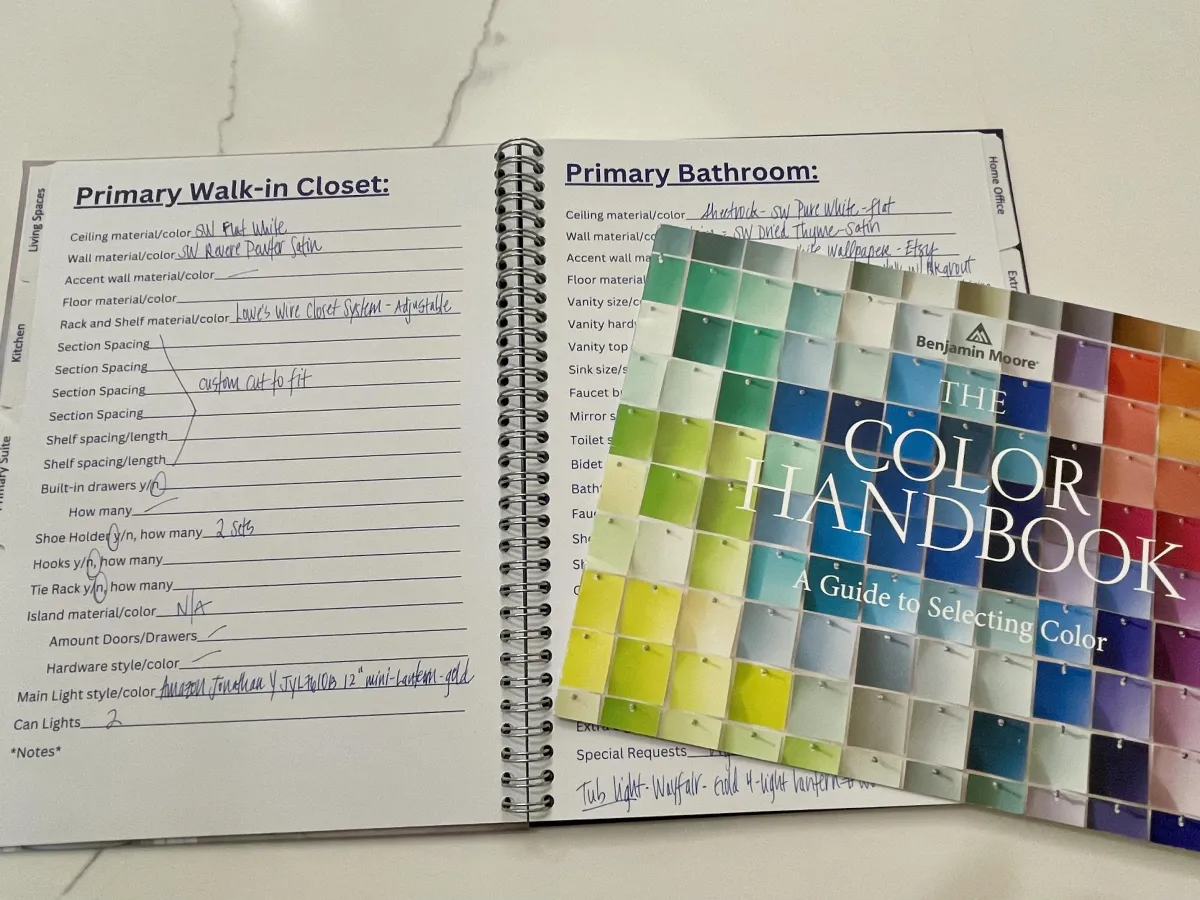 Living Spaces
Kitchen
Primary Walk-in Closet:
Ceiling material/color SW Flat White
Wall material/color SW Revere Pewter Satin
Accent wall material/color
Floor material/color
Rack and Shelf material/color Lowe's Wire Closet System - Adjustable
Section Spacing
Section Spacing
Section Spacing custom cut to fit
Section Spacing
Shelf spacing/length
Shelf spacing/length
Built-in drawers y/n
How many
Shoe Holder y/n, how many 2 sets
Hooks y/n, how many
Tie Rack y/n, how many
Island material/color N/A
Amount Doors/Drawers
Hardware style/color
Main Light style/color Amazon Jonathan Y 12" mini-Lantern-gold
Can Lights 2
*Notes*
Primary Bathroom:
Ceiling material/color Sheetrock - SW Pure White - flat
Wall material/color SW Dried Thyme - Satin
Accent wa wallpaper - Etsy
Floor material grout
Vanity size/c
Vanity hard
Vanity top
Sink size/s
Faucet
Mirror s
Toilet s
Bidet
Bath
Fau
Special Requests
Tub light - Wayfair - Gold 4-light lantern
Home Office
Benjamin Moore
THE
COLOR
HANDBOOK
A Guide to Selecting Color